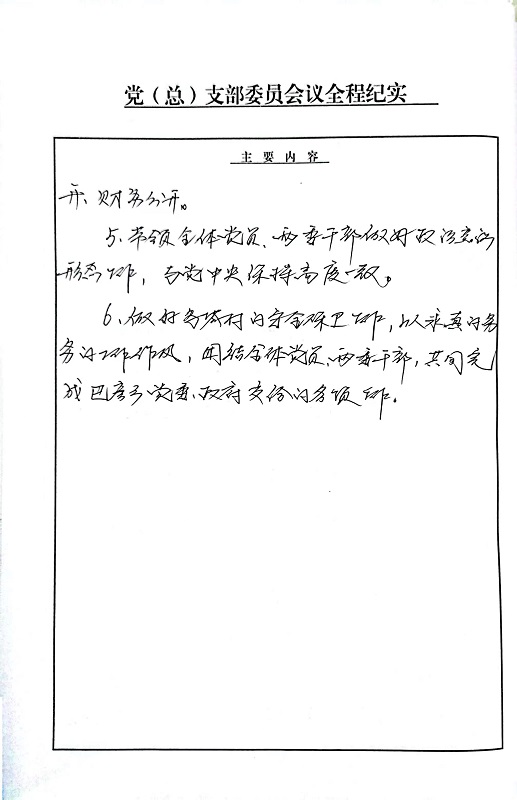 党（总）支部委员会议全程纪实
主要内容
开、财务公开。
5、带领全体党员、两委干部做好政治意识
形态工作，与党中央保持高度一致。
6、做好务本村的安全保卫工作，以求真的务
务的工作作风，团结全体党员、两委干部，共同完
成巴彦乡党委、政府交给的各项工作。